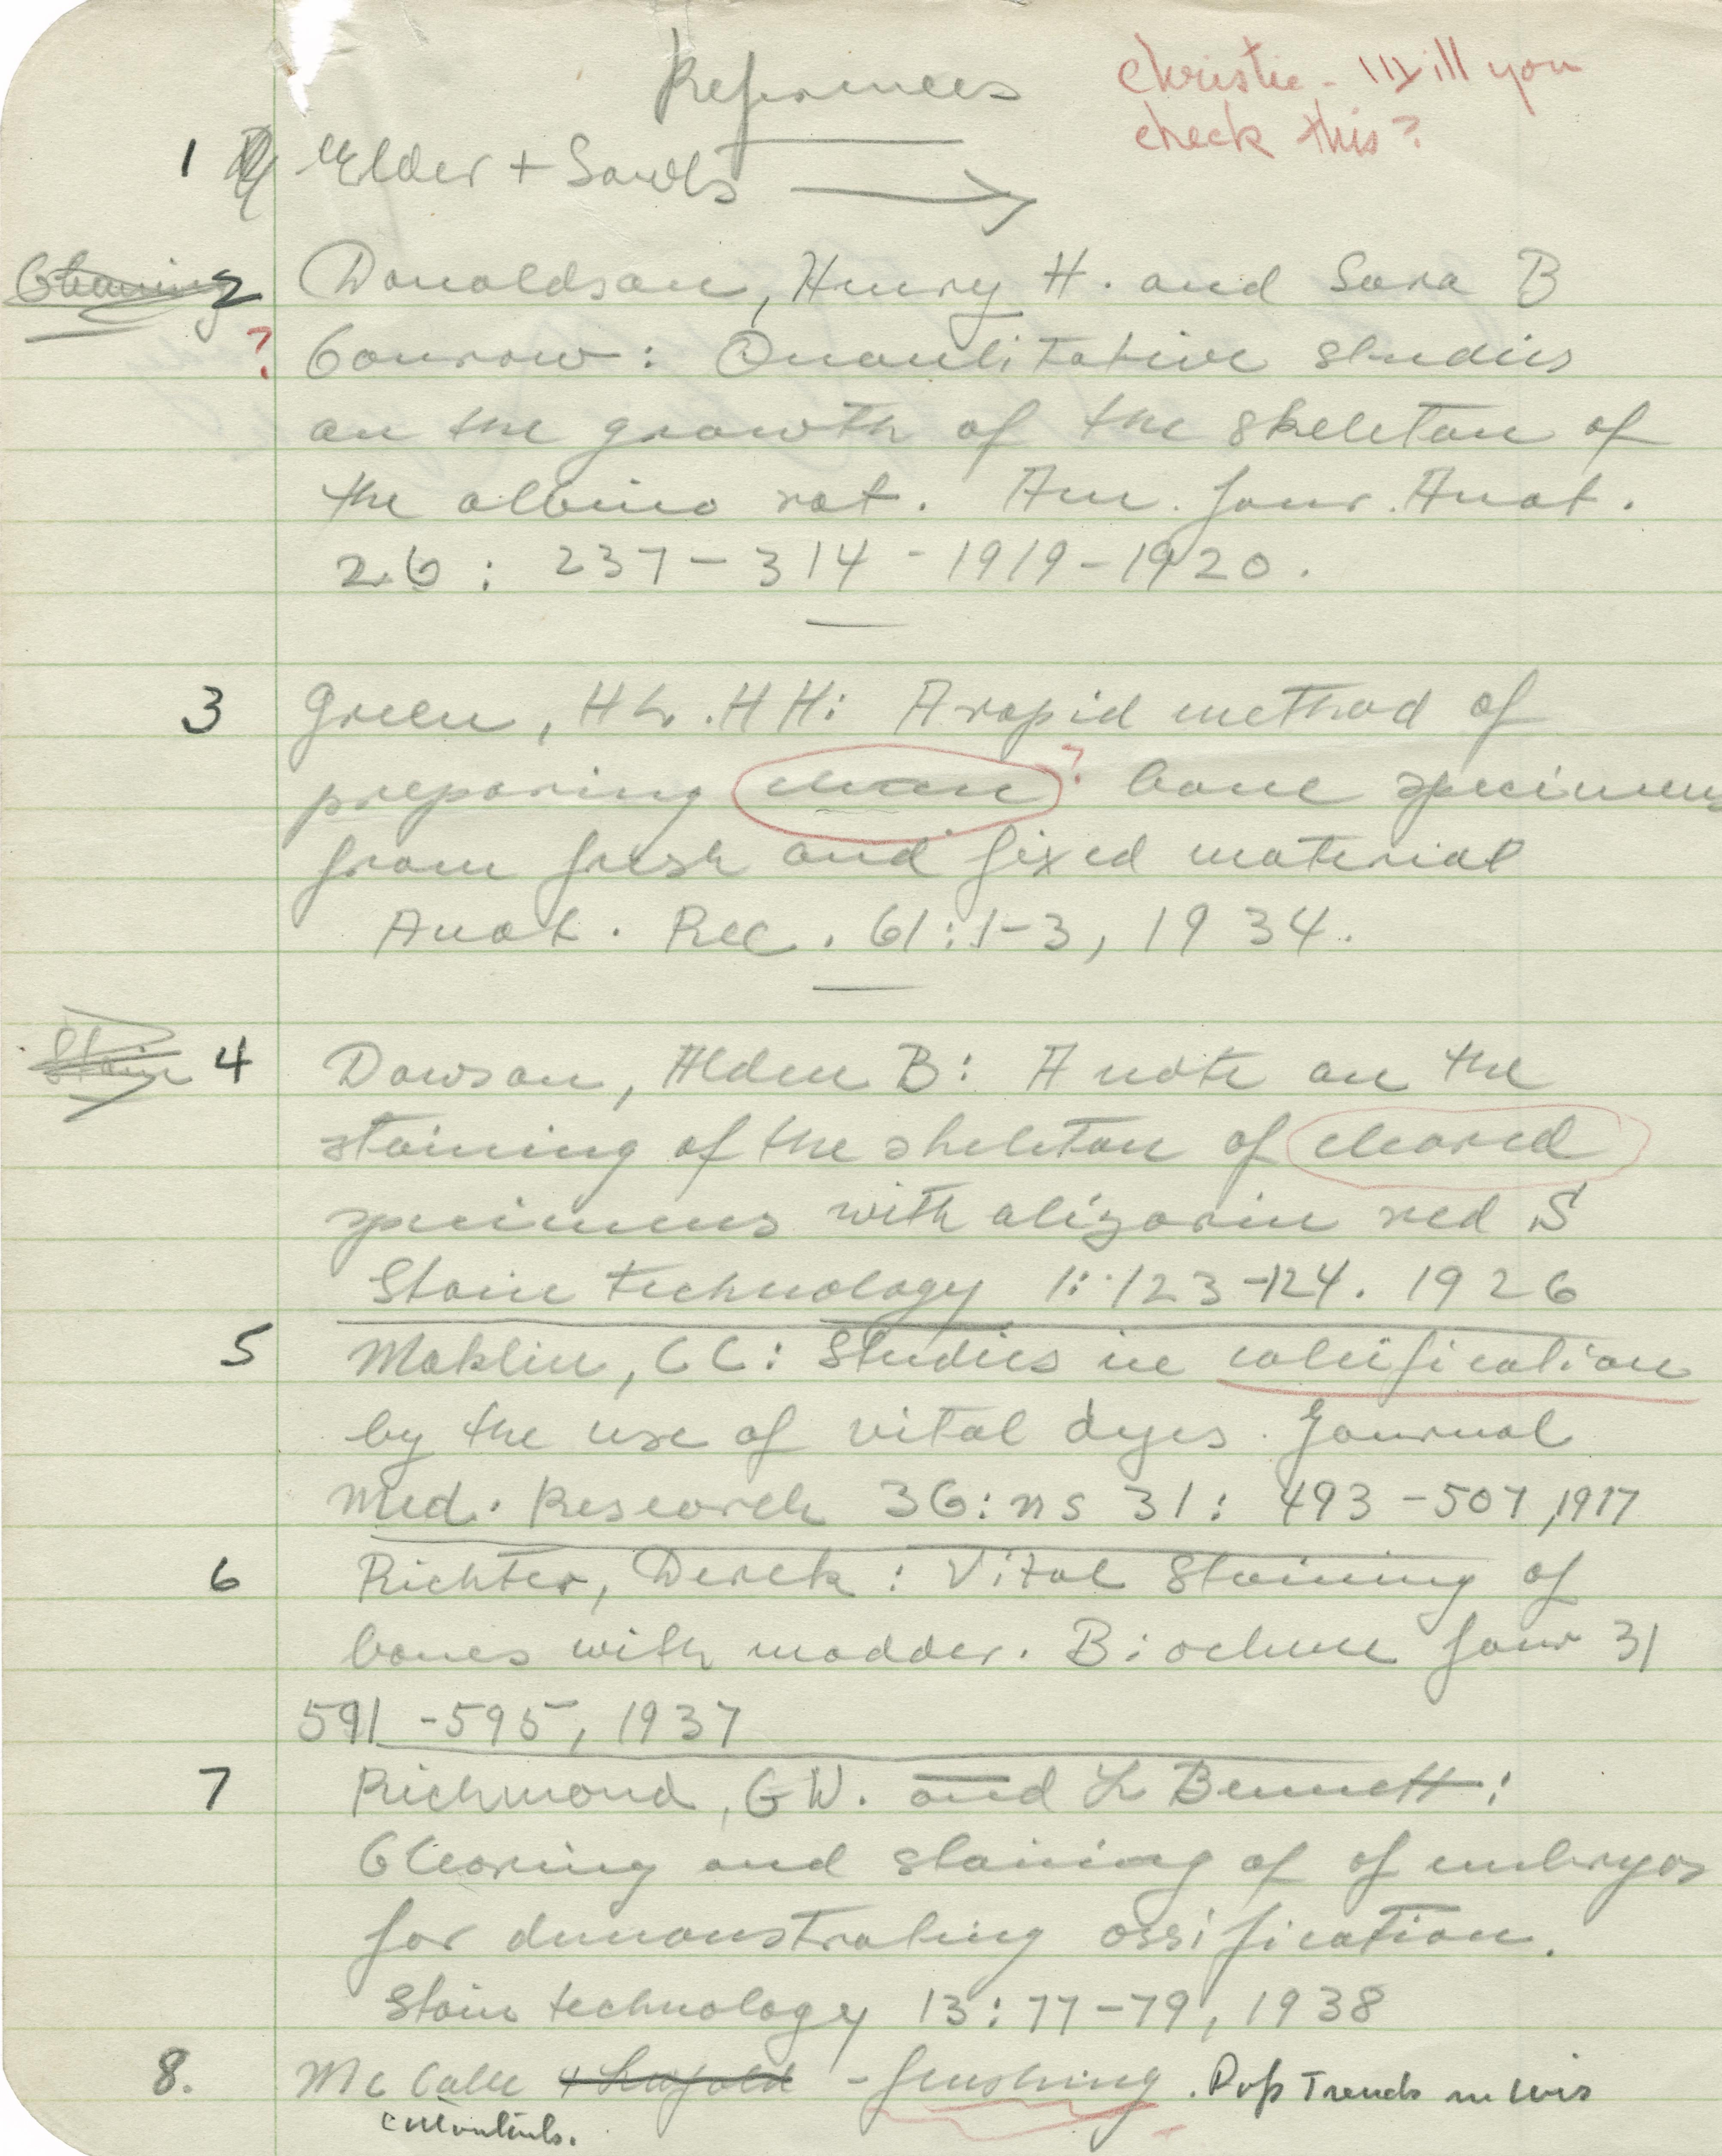 References
Christie - Will you
check this?
1 Elder + Sowls
Cleaning 2 Donaldson, Henry H. and Sara B
? Conrow: Quantitative studies
on the growth of the skeleton of
the albino rat. Am. Jour. Anat.
26: 237-314 - 1919-1920.
3 Green, H L. H H: A rapid method of
preparing clean ? bone specimens
from fresh and fixed material
Anat. Rec. 61:1-3, 1934.
Stain 4 Dawson, Alden B: A note on the
staining of the skeleton of cleared
specimens with alizarin red S
Stain technology 1:123-124. 1926
5 Maklin, CC: Studies in calcification
by the use of vital dyes. Journal
Med. Research 36: ns 31: 493-507, 1917
6 Richter, Derek: Vital Staining of
bones with madder. Biochem Jour 31
591-595, 1937
7 Richmond, GW. and L Bennett:
Clearing and staining of of embryos
for demonstrating ossification.
Stain technology 13:77-79, 1938
8. McCabe + Leopold - . Pop Trends in Wis
cottontails.